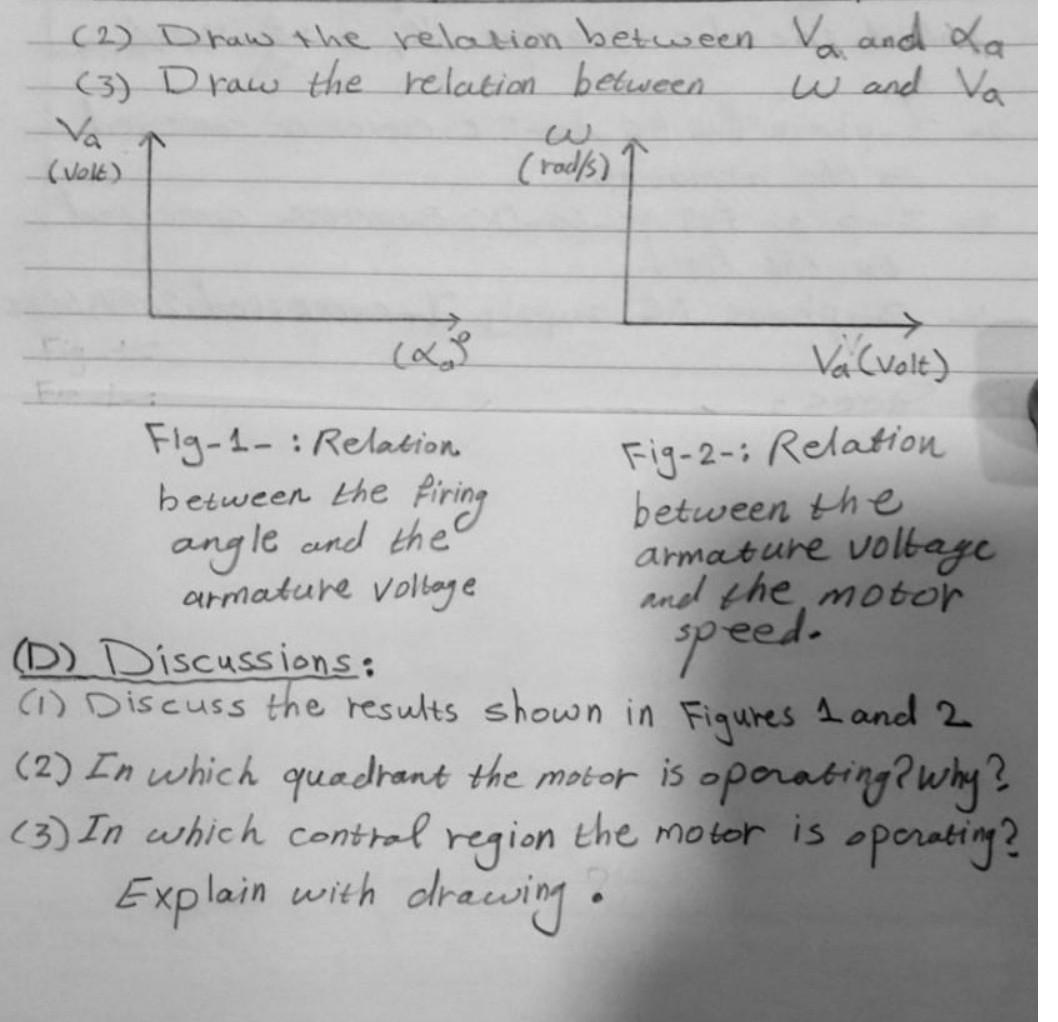 (2) Draw the relation between Va and αa
(3) Draw the relation between ω and Va
Va
(Volt)
(αa)°
ω
(rad/s)
Va (Volt)
Fig-1- : Relation
between the firing
angle and the
armature voltage
Fig-2-: Relation
between the
armature voltage
and the motor
speed.
(D) Discussions:
(1) Discuss the results shown in Figures 1 and 2
(2) In which quadrant the motor is operating? Why?
(3) In which control region the motor is operating?
Explain with drawing.